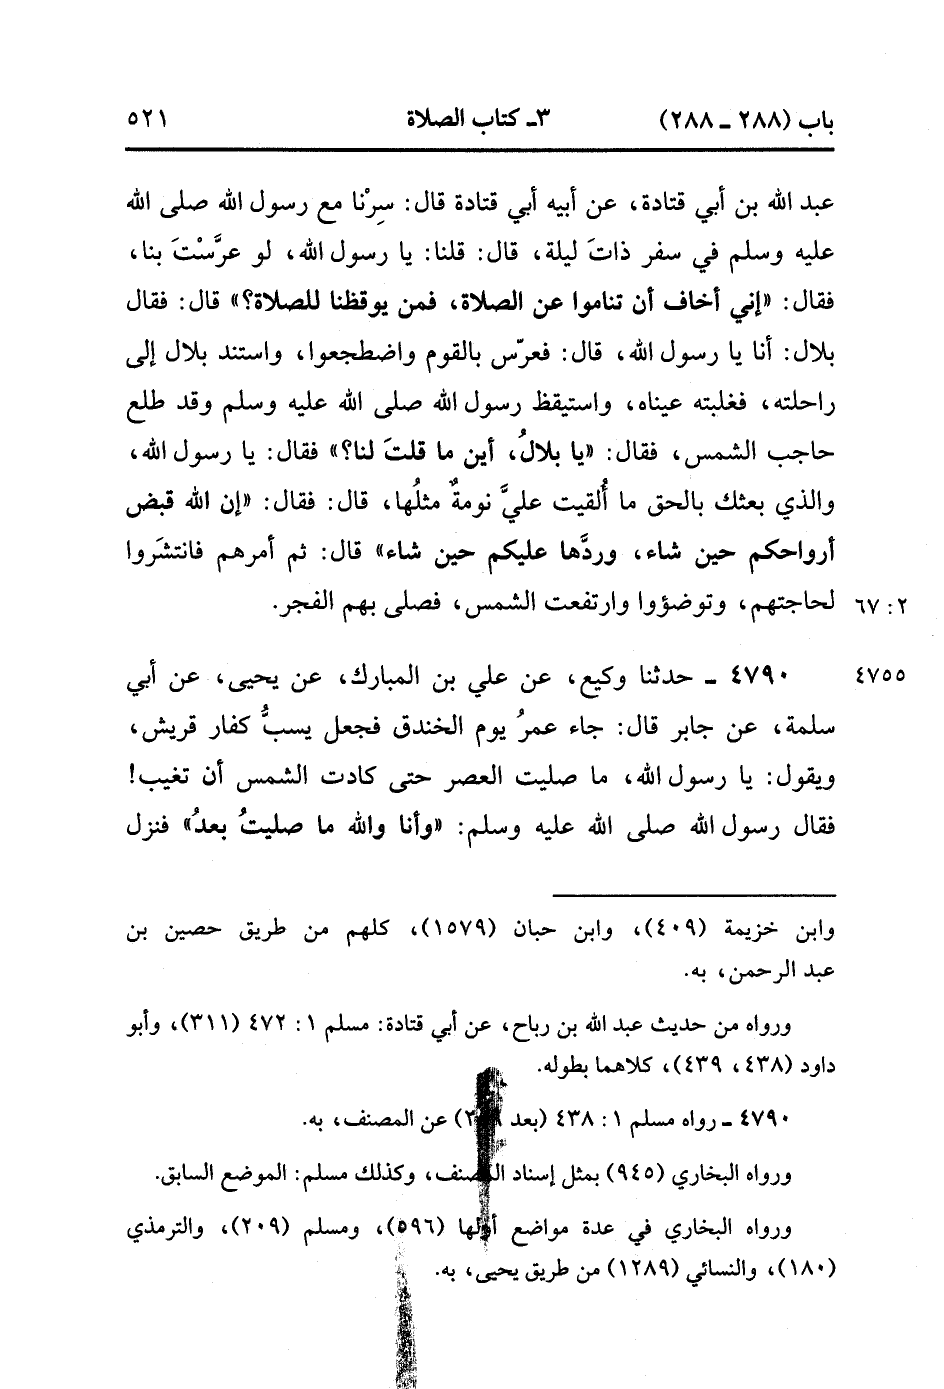 باب (٢٨٨ - ٢٨٨) ٣- كتاب الصلاة ٥٢١
عبد الله بن أبي قتادة، عن أبيه أبي قتادة قال: سِرْنا مع رسول الله صلى الله
عليه وسلم في سفر ذاتَ ليلة، قال: قلنا: يا رسول الله، لو عرَّسْتَ بنا،
فقال: «إني أخاف أن تناموا عن الصلاة، فمن يوقظنا للصلاة؟» قال: فقال
بلال: أنا يا رسول الله، قال: فعرّس بالقوم واضطجعوا، واستند بلال إلى
راحلته، فغلبته عيناه، واستيقظ رسول الله صلى الله عليه وسلم وقد طلع
حاجب الشمس، فقال: «يا بلالُ، أين ما قلتَ لنا؟» فقال: يا رسول الله،
والذي بعثك بالحق ما أُلقيت عليَّ نومةٌ مثلُها، قال: فقال: «إن الله قبض
أرواحكم حين شاء، وردَّها عليكم حين شاء» قال: ثم أمرهم فانتشَروا
٢: ٦٧ لحاجتهم، وتوضؤوا وارتفعت الشمس، فصلى بهم الفجر.
٤٧٥٥ ٤٧٩٠ - حدثنا وكيع، عن علي بن المبارك، عن يحيى، عن أبي
سلمة، عن جابر قال: جاء عمرُ يوم الخندق فجعل يسبُّ كفار قريش،
ويقول: يا رسول الله، ما صليت العصر حتى كادت الشمس أن تغيب!
فقال رسول الله صلى الله عليه وسلم: «وأنا والله ما صليتُ بعدُ» فنزل
وابن خزيمة (٤٠٩)، وابن حبان (١٥٧٩)، كلهم من طريق حصين بن
عبد الرحمن، به.
ورواه من حديث عبد الله بن رباح، عن أبي قتادة: مسلم ١: ٤٧٢ (٣١١)، وأبو
داود (٤٣٨، ٤٣٩)، كلاهما بطوله.
٤٧٩٠ - رواه مسلم ١: ٤٣٨ (بعد) عن المصنف، به.
ورواه البخاري (٩٤٥) بمثل إسناد المصنف، وكذلك مسلم: الموضع السابق.
ورواه البخاري في عدة مواضع أولها (٥٩٦)، ومسلم (٢٠٩)، والترمذي
(١٨٠)، والنسائي (١٢٨٩) من طريق يحيى، به.